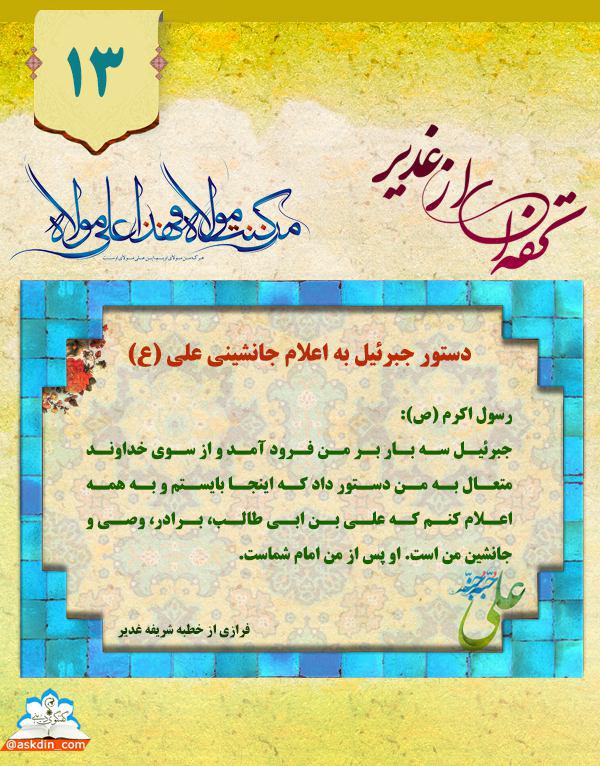 ۱۳
تحفه ای از غدیر
من کنت مولاه فهذا علی مولاه
هر که من مولای اویم این علی مولای اوست
دستور جبرئیل به اعلام جانشینی علی (ع)
رسول اکرم (ص):
جبرئیل سه بار بر من فرود آمد و از سوی خداوند
متعال به من دستور داد که اینجا بایستم و به همه
اعلام کنم که علی بن ابی طالب، برادر، وصی و
جانشین من است. او پس از من امام شماست.
علی حبه جنة
فرازی از خطبه شریفه غدیر
@askdin_com